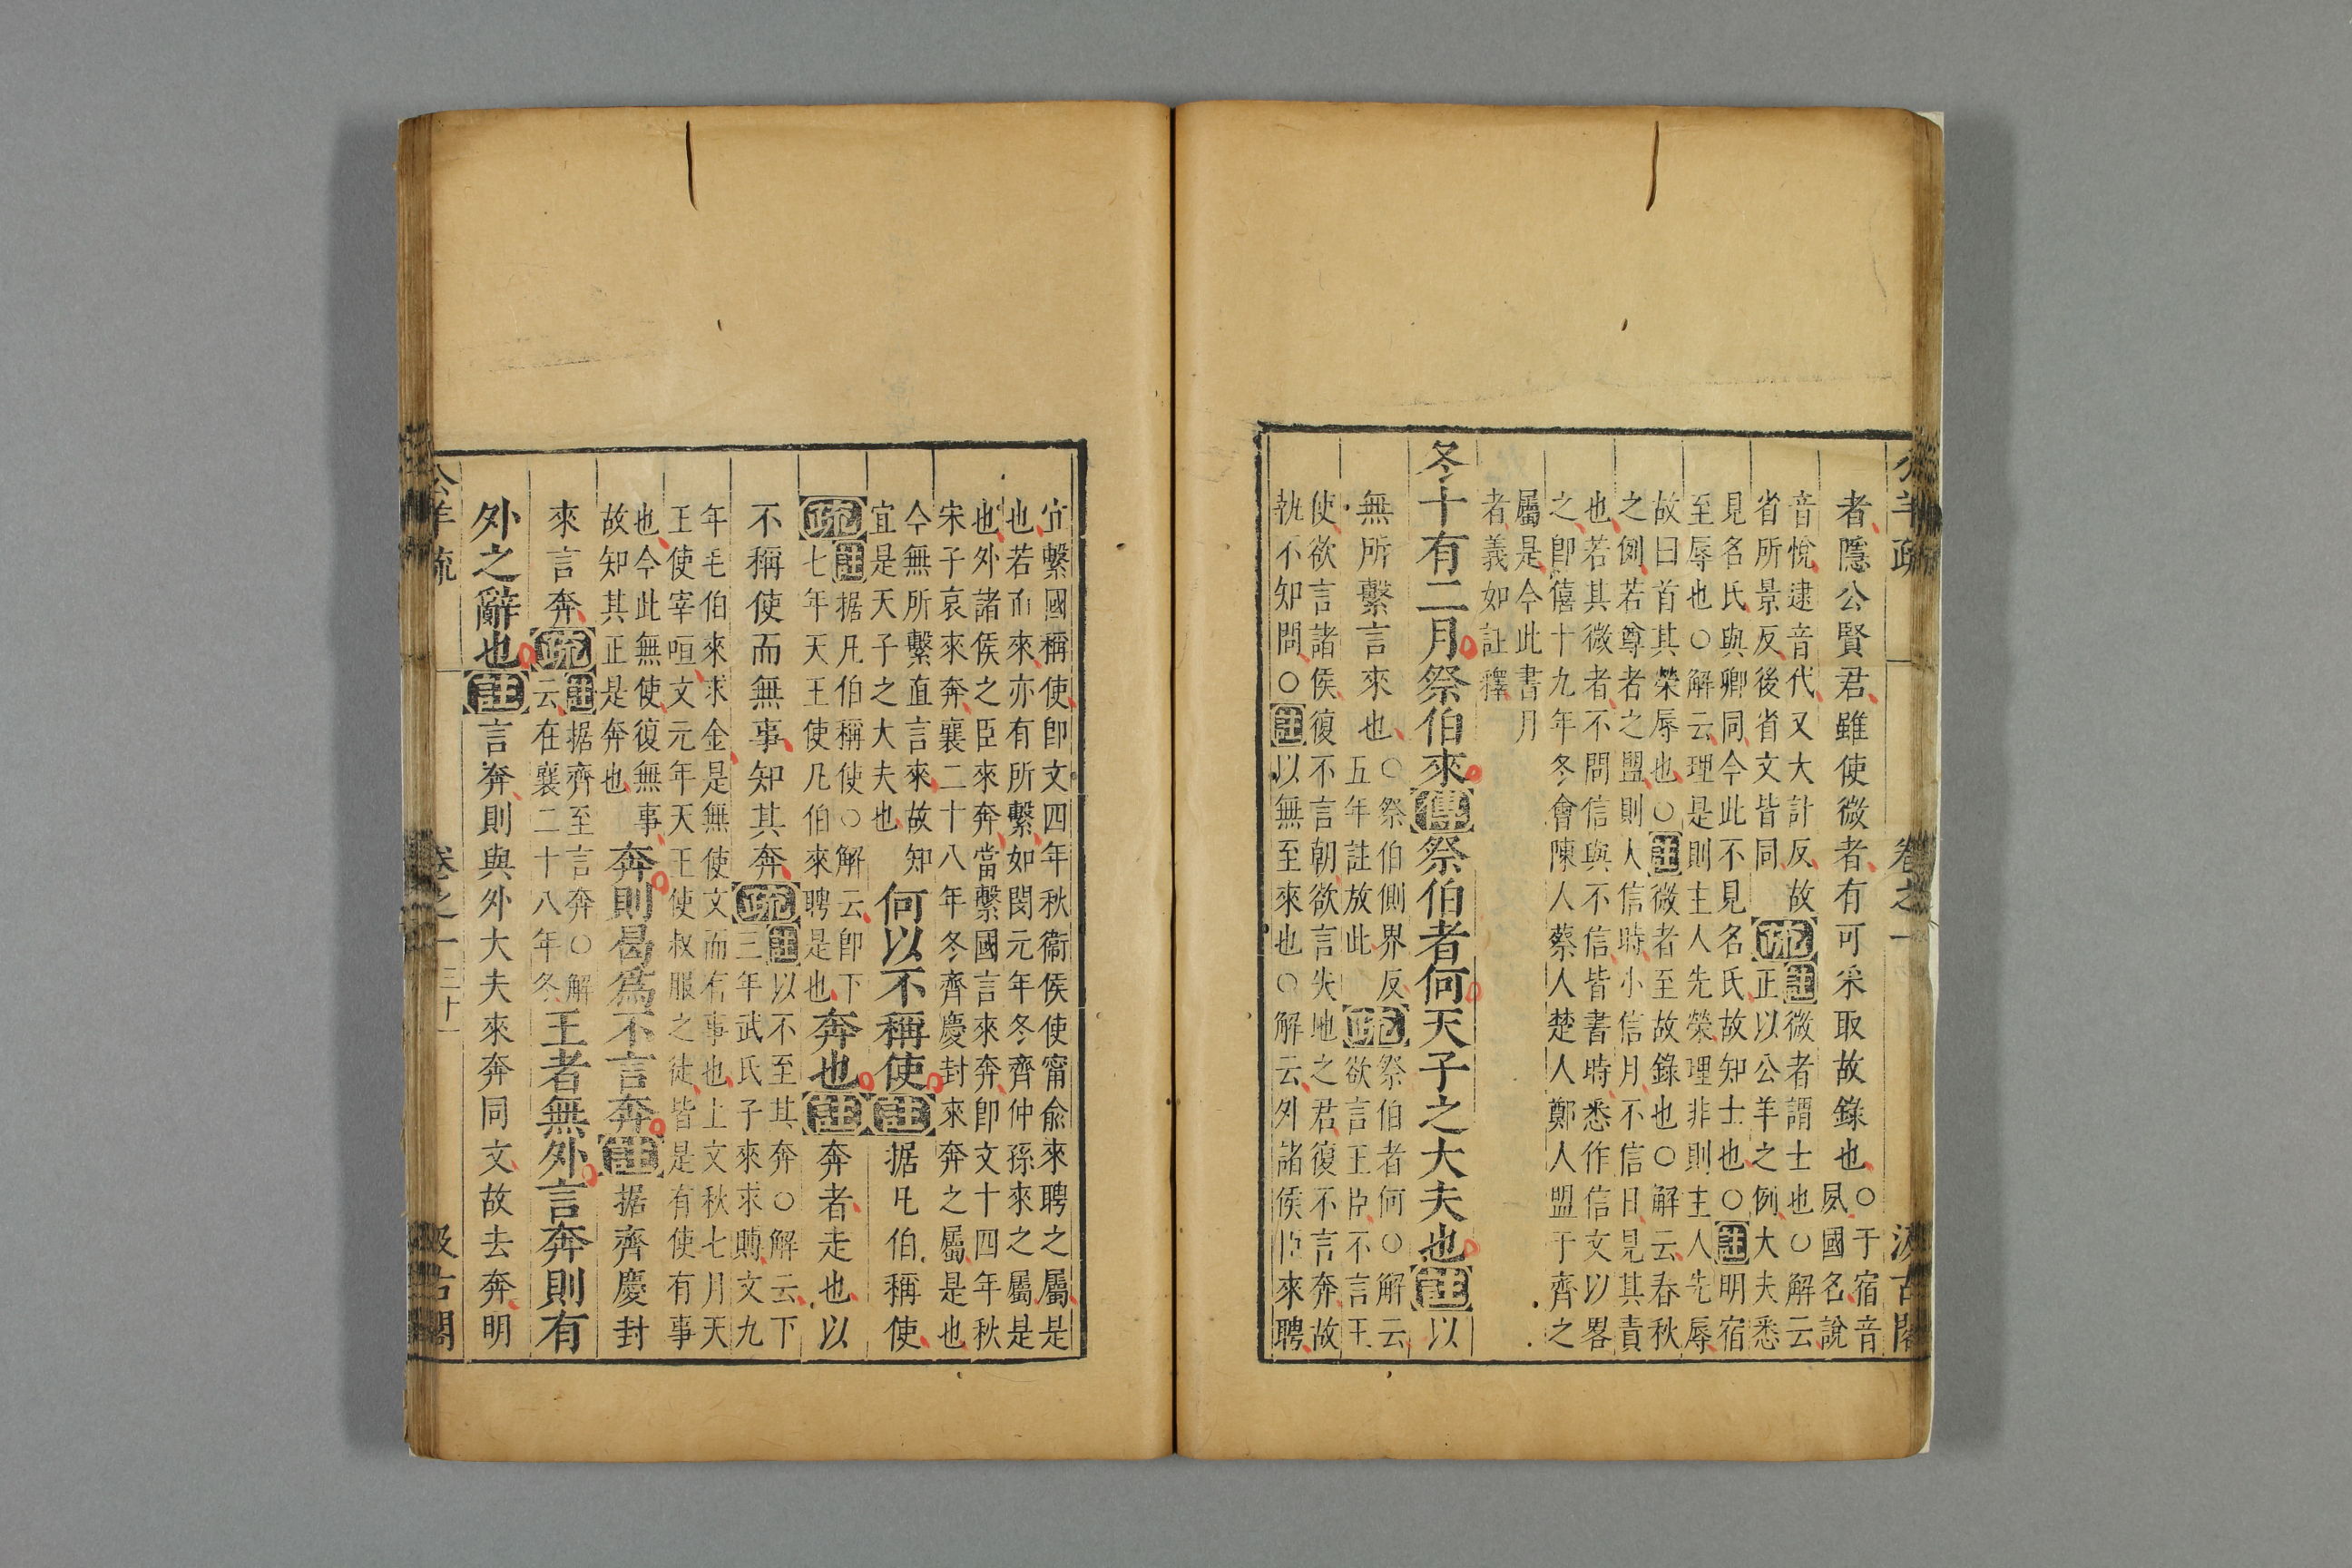 公羊疏 卷之一 汲古閣
者隱公賢君雖使微者有可采取故錄也○于宿音
夙國名說
音悅逮音代又大計反故疏註微者謂士也○解云
省所景反後省文皆同正以公羊之例大夫悉
見名氏與卿同今此不見名氏故知士也○註明宿
至辱也○解云理是則主人先榮理非則主人先辱
故曰首其榮辱也○註微者至故錄也○解云春秋
之例若尊者之盟則人信時小信月不信日見其責
也若其微者不問信與不信皆書時悉作信文以畧
之卽僖十九年冬會陳人蔡人楚人鄭人盟于齊之
屬是今此書月
者義如註釋
冬十有二月祭伯來傳祭伯者何天子之大夫也註以
無所繫言來也
○祭伯側界反
五年註放此
疏祭伯者何○解云
欲言王臣不言王
使欲言諸侯復不言朝欲言失地之君復不言奔故
執不知問○註以無至來也○解云外諸侯臣來聘
宜繫國稱使卽文四年秋衞侯使甯俞來聘之屬是
也若而來亦有所繫如閔元年冬齊仲孫來之屬是
也外諸侯之臣來奔當繫國言來奔卽文十四年秋
宋子哀來奔襄二十八年冬齊慶封來奔之屬是也
今無所繫直言來故知
宜是天子之大夫也
何以不稱使註据凡伯稱使
疏註据凡伯稱使○解云卽下
七年天王使凡伯來聘是也
奔也註奔者走也以
不稱使而無事知其奔疏註以不至其奔○解云下
三年武氏子來求賻文九
年毛伯來求金是無使文而有事也上文秋七月天
王使宰咺文元年天王使叔服之徒皆是有使有事
也今此無使復無事
故知其正是奔也
奔則曷爲不言奔註据齊慶封
來言奔疏註据齊至言奔○解
云在襄二十八年冬
王者無外言奔則有
外之辭也註言奔則與外大夫來奔同文故去奔明
公羊疏 卷之一 三十一 汲古閣